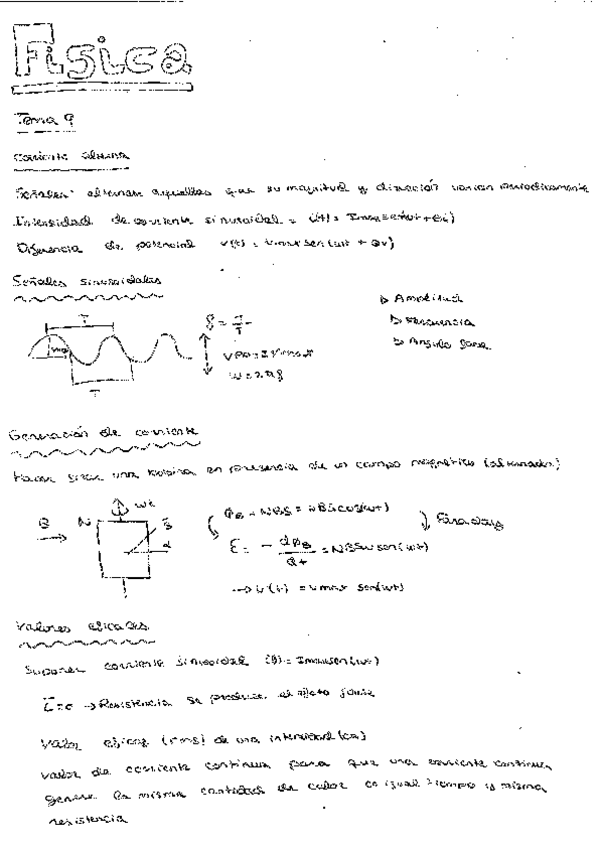 Física
Tema 9
corriente alterna
Señales: alternan aquellas que su magnitud y dirección varian periodicamente
Intensidad de corriente sinusoidal = i(t) = Imax sen(wt + θi)
Diferencia de potencial v(t) = Vmax sen(wt + θv)
Señales sinusoidales
T
f = 1/T
w = 2πf
T
▷ Amplitud
▷ Frecuencia
▷ Angulo fase
Generación de corriente
Hacer girar una bobina en presencia de un campo magnético (alternador)
B
N
wt
B
α
ΦB = NBS = NBS cos(wt)
Faraday
ε = - dΦB/dt = NBSw sen(wt)
→ v(t) = vmax sen(wt)
Valores eficaces
Suponer corriente sinusoidal i(t) = Imax sen(wt)
→ Resistencia se produce el efecto joule
Valor eficaz (rms) de una intensidad (ca)
valor de corriente continua para que una corriente continua
genere la misma cantidad de calor en igual tiempo y misma
resistencia